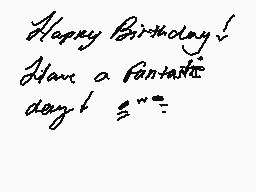 Happy Birthday!
Have a fantastic
day!